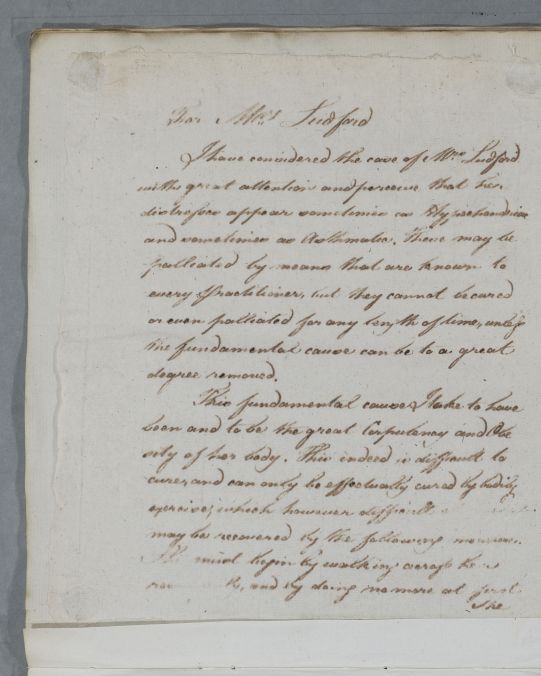 For Mrs Ludford
I have considered the case of Mrs Ludford
with great attention and perceive that her
distresses appear sometimes as Hypochondriac
and sometimes as Asthmatic. These may be
palliated by means that are known to
every Practitioner, but they cannot be cured
or even palliated for any length of time, unless
the fundamental cause can be to a great
degree removed.
This fundamental cause I take to have
been and to be the great Corpulency and Obe
sity of her body. This indeed is difficult to
cure, and can only be effectually cured by bodily
exercise, which however difficult
may be recovered by the following
must begin by walking across her
and by doing no more at first
She